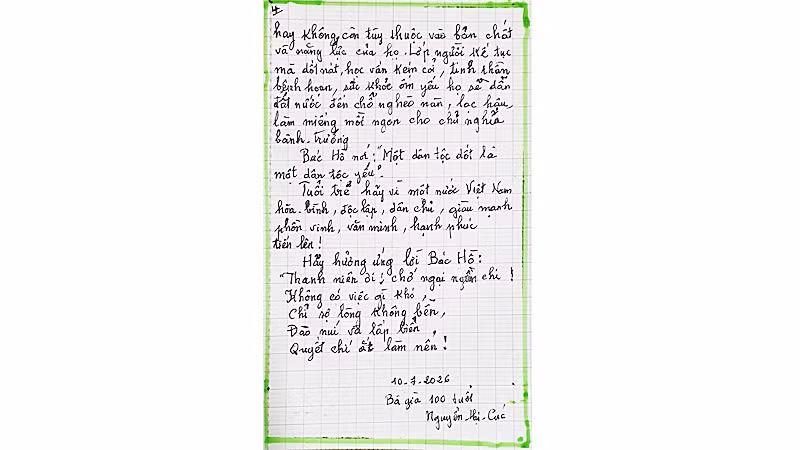 4
hay không, còn tùy thuộc vào bản chất
và năng lực của họ. Lớp người kế tục
mà dốt nát, học vấn kém cỏi, tinh thần
bệnh hoạn, sức khỏe ốm yếu họ sẽ dẫn
đất nước đến chỗ nghèo nàn, lạc hậu,
làm miếng mồi ngon cho chủ nghĩa
bành-trướng
Bác Hồ nói: "Một dân tộc dốt là
một dân tộc yếu".
Tuổi trẻ hãy vì một nước Việt Nam
hòa-bình, độc lập, dân chủ, giàu mạnh
phồn vinh, văn minh, hạnh phúc
tiến lên!
Hãy hưởng ứng lời Bác Hồ:
"Thanh niên ơi; chớ ngại ngần chi!
Không có việc gì khó,
Chỉ sợ lòng không bền,
Đào núi và lấp biển,
Quyết chí ắt làm nên!
10-7-2026
Bà già 100 tuổi
Nguyễn-thị-Cúc